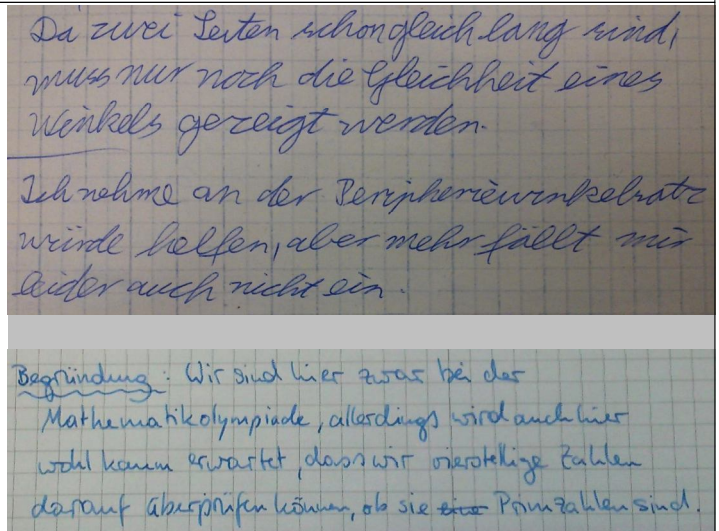 Da zwei Seiten schon gleich lang sind,
muss nur noch die Gleichheit eines
Winkels gezeigt werden.
Ich nehme an der Peripheriewinkelsatz
würde helfen, aber mehr fällt mir
leider auch nicht ein.
Begründung: Wir sind hier zwar bei der
Mathematikolympiade, allerdings wird auch hier
wohl kaum erwartet, dass wir vierstellige Zahlen
darauf überprüfen können, ob sie eine Primzahlen sind.